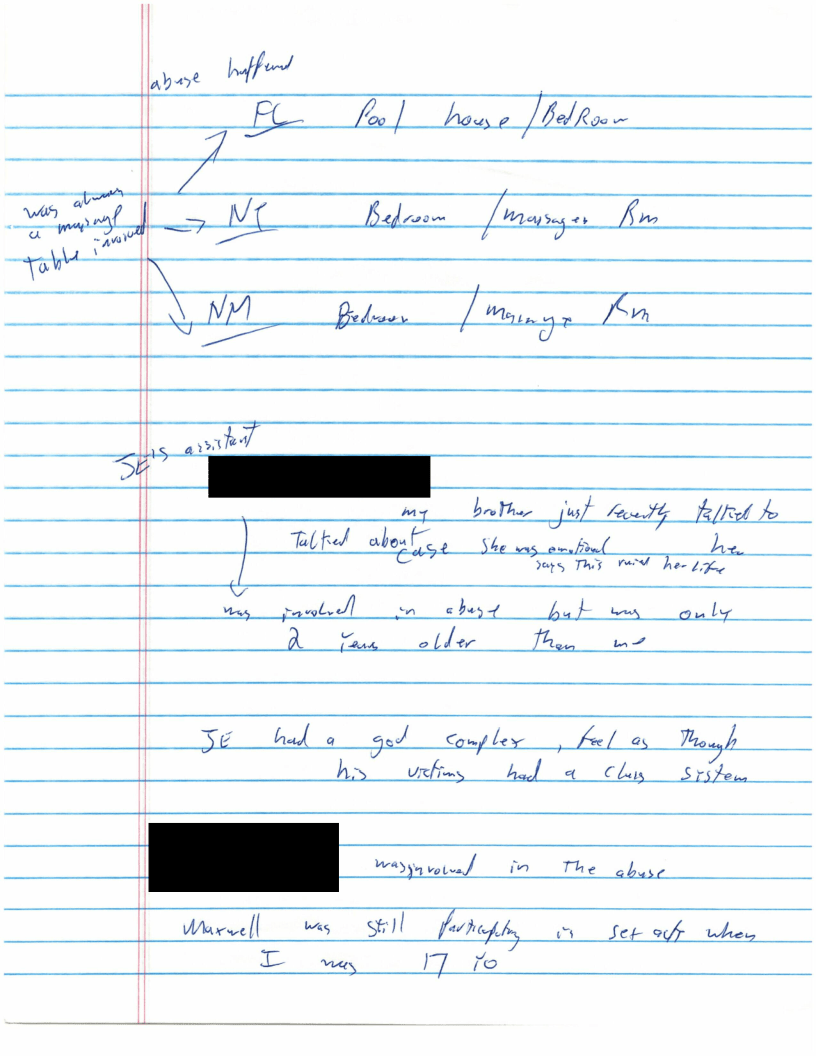 abuse happened
FL Pool house / BedRoom
was always
a massage
Table involved
NY Bedroom / massages Rm
NM Bedroom / massage Rm
JE's assistant
my brother just recently talked to
Talked about case she was emotional her
says This ruind her Life
was involved in abuse but was only
2 years older than me
JE had a god complex, feel as Though
his victims had a class system
was involved in The abuse
Maxwell was still participating in sex acts when
I was 17 YO